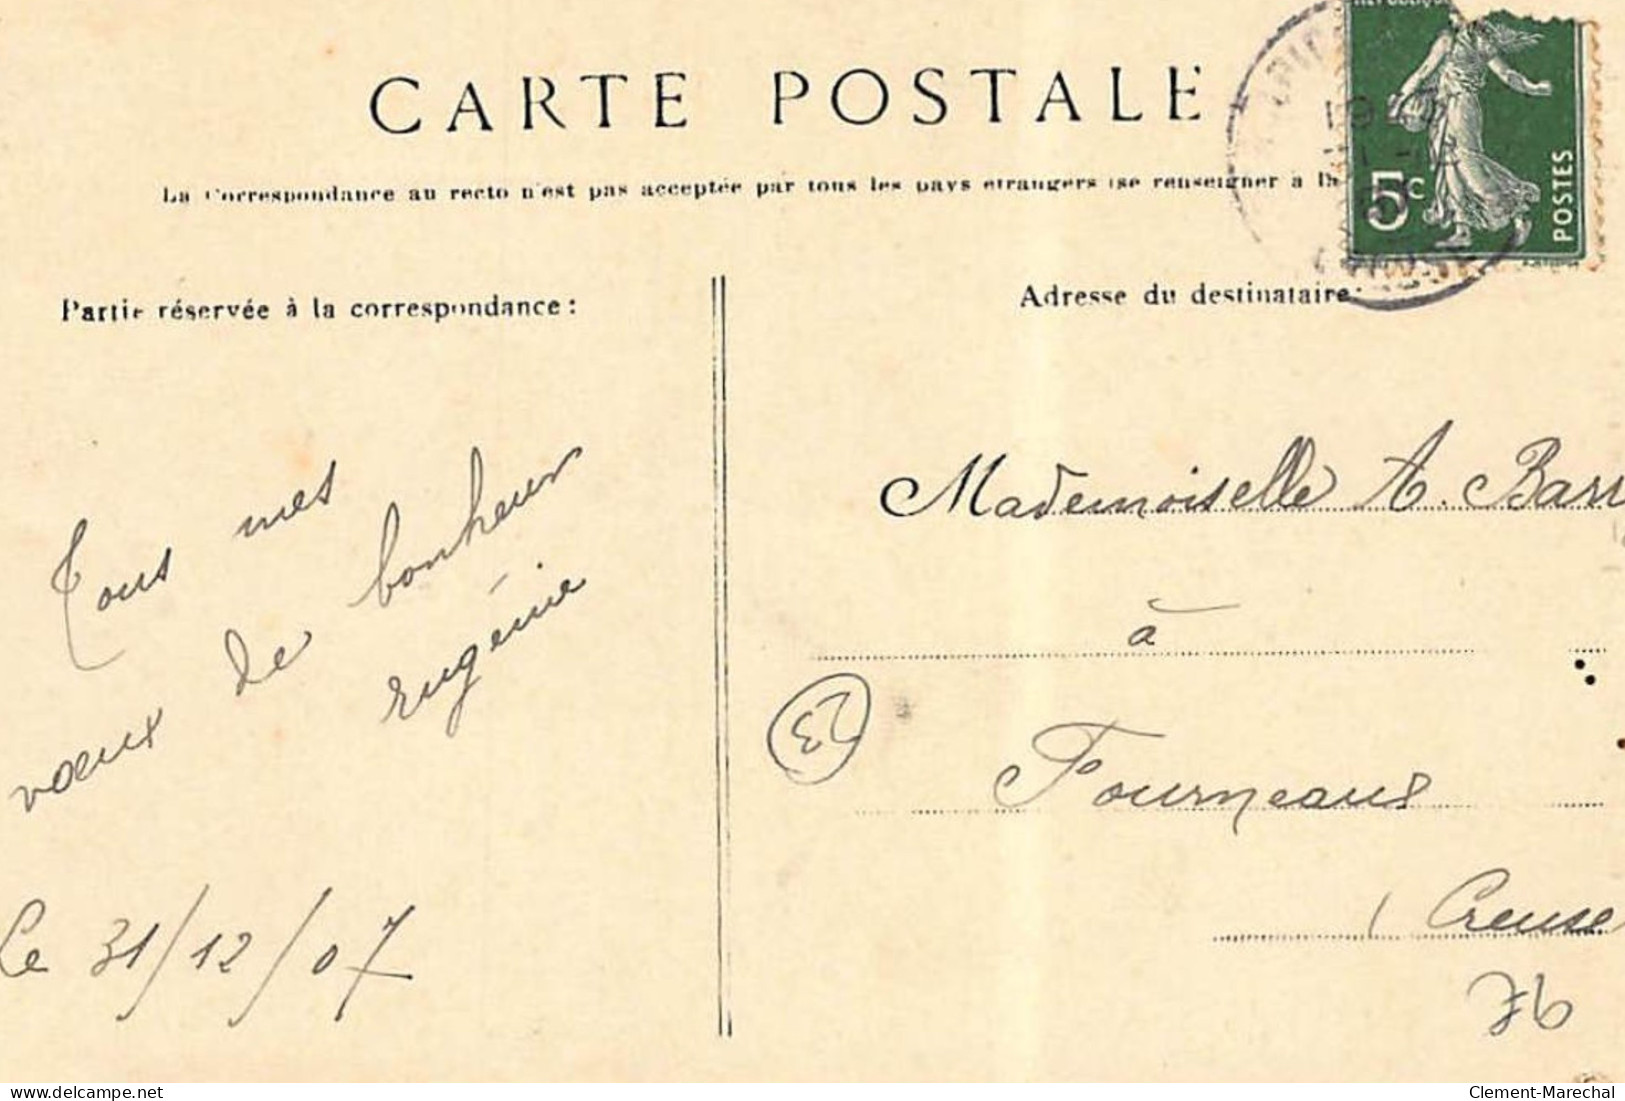 CARTE POSTALE
La Correspondance au recto n'est pas acceptée par tous les pays etrangers (se renseigner a la
5c POSTES
Partie réservée à la correspondance :
Adresse du destinataire
Tous mes
voeux de bonheur
eugénie
Le 31/12/07
Mademoiselle A. Barr
à
Fourneaux
(Creuse
23
76
delcampe.net
Clement-Marechal